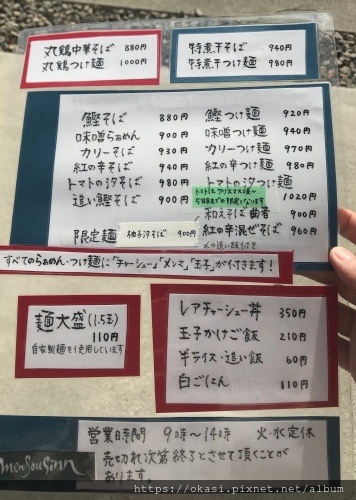 丸鶏中華そば 880円
丸鶏つけ麺 1000円
特煮干そば 940円
特煮干つけ麺 980円
鰹そば 880円
味噌らぁめん 900円
カリーそば 930円
紅の辛そば 940円
トマトの汐そば 980円
追い鰹そば 900円
限定麺 柚子汐そば 900円
鰹つけ麺 920円
味噌つけ麺 940円
カリーつけ麺 970円
紅の辛つけ麺 980円
トマトの汐つけ麺 1020円
トマトは クリスマス頃〜
5月末までの限定になります
和えそば 曲者 900円
紅の辛混ぜそば 960円
〆の追い飯付き
すべてのらぁめん・つけ麺に「チャーシュー」「メンマ」「玉子」が付きます!
麺大盛(1.5玉)
110円
自家製麺を使用しています
レアチャーシュー丼 350円
玉子かけご飯 210円
半ライス・追い飯 60円
白ごはん 110円
営業時間 9時〜14時 火・水定休
売切れ次第終了とさせて頂くことが
あります。
MenSouSinn
https://okasi.pxnet.net/album